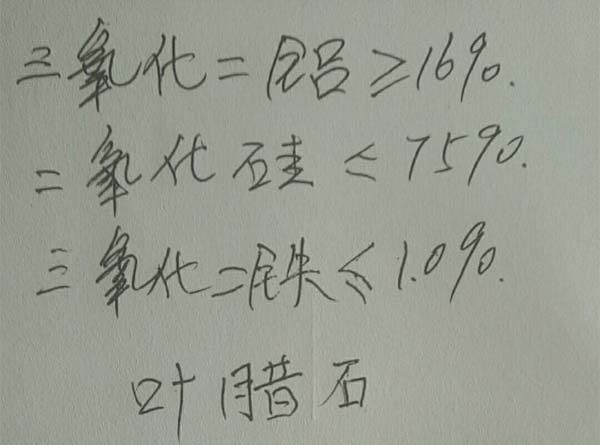 三氧化二铝≥16%.
二氧化硅≤75%.
三氧化二铁≤1.0%.
叶腊石